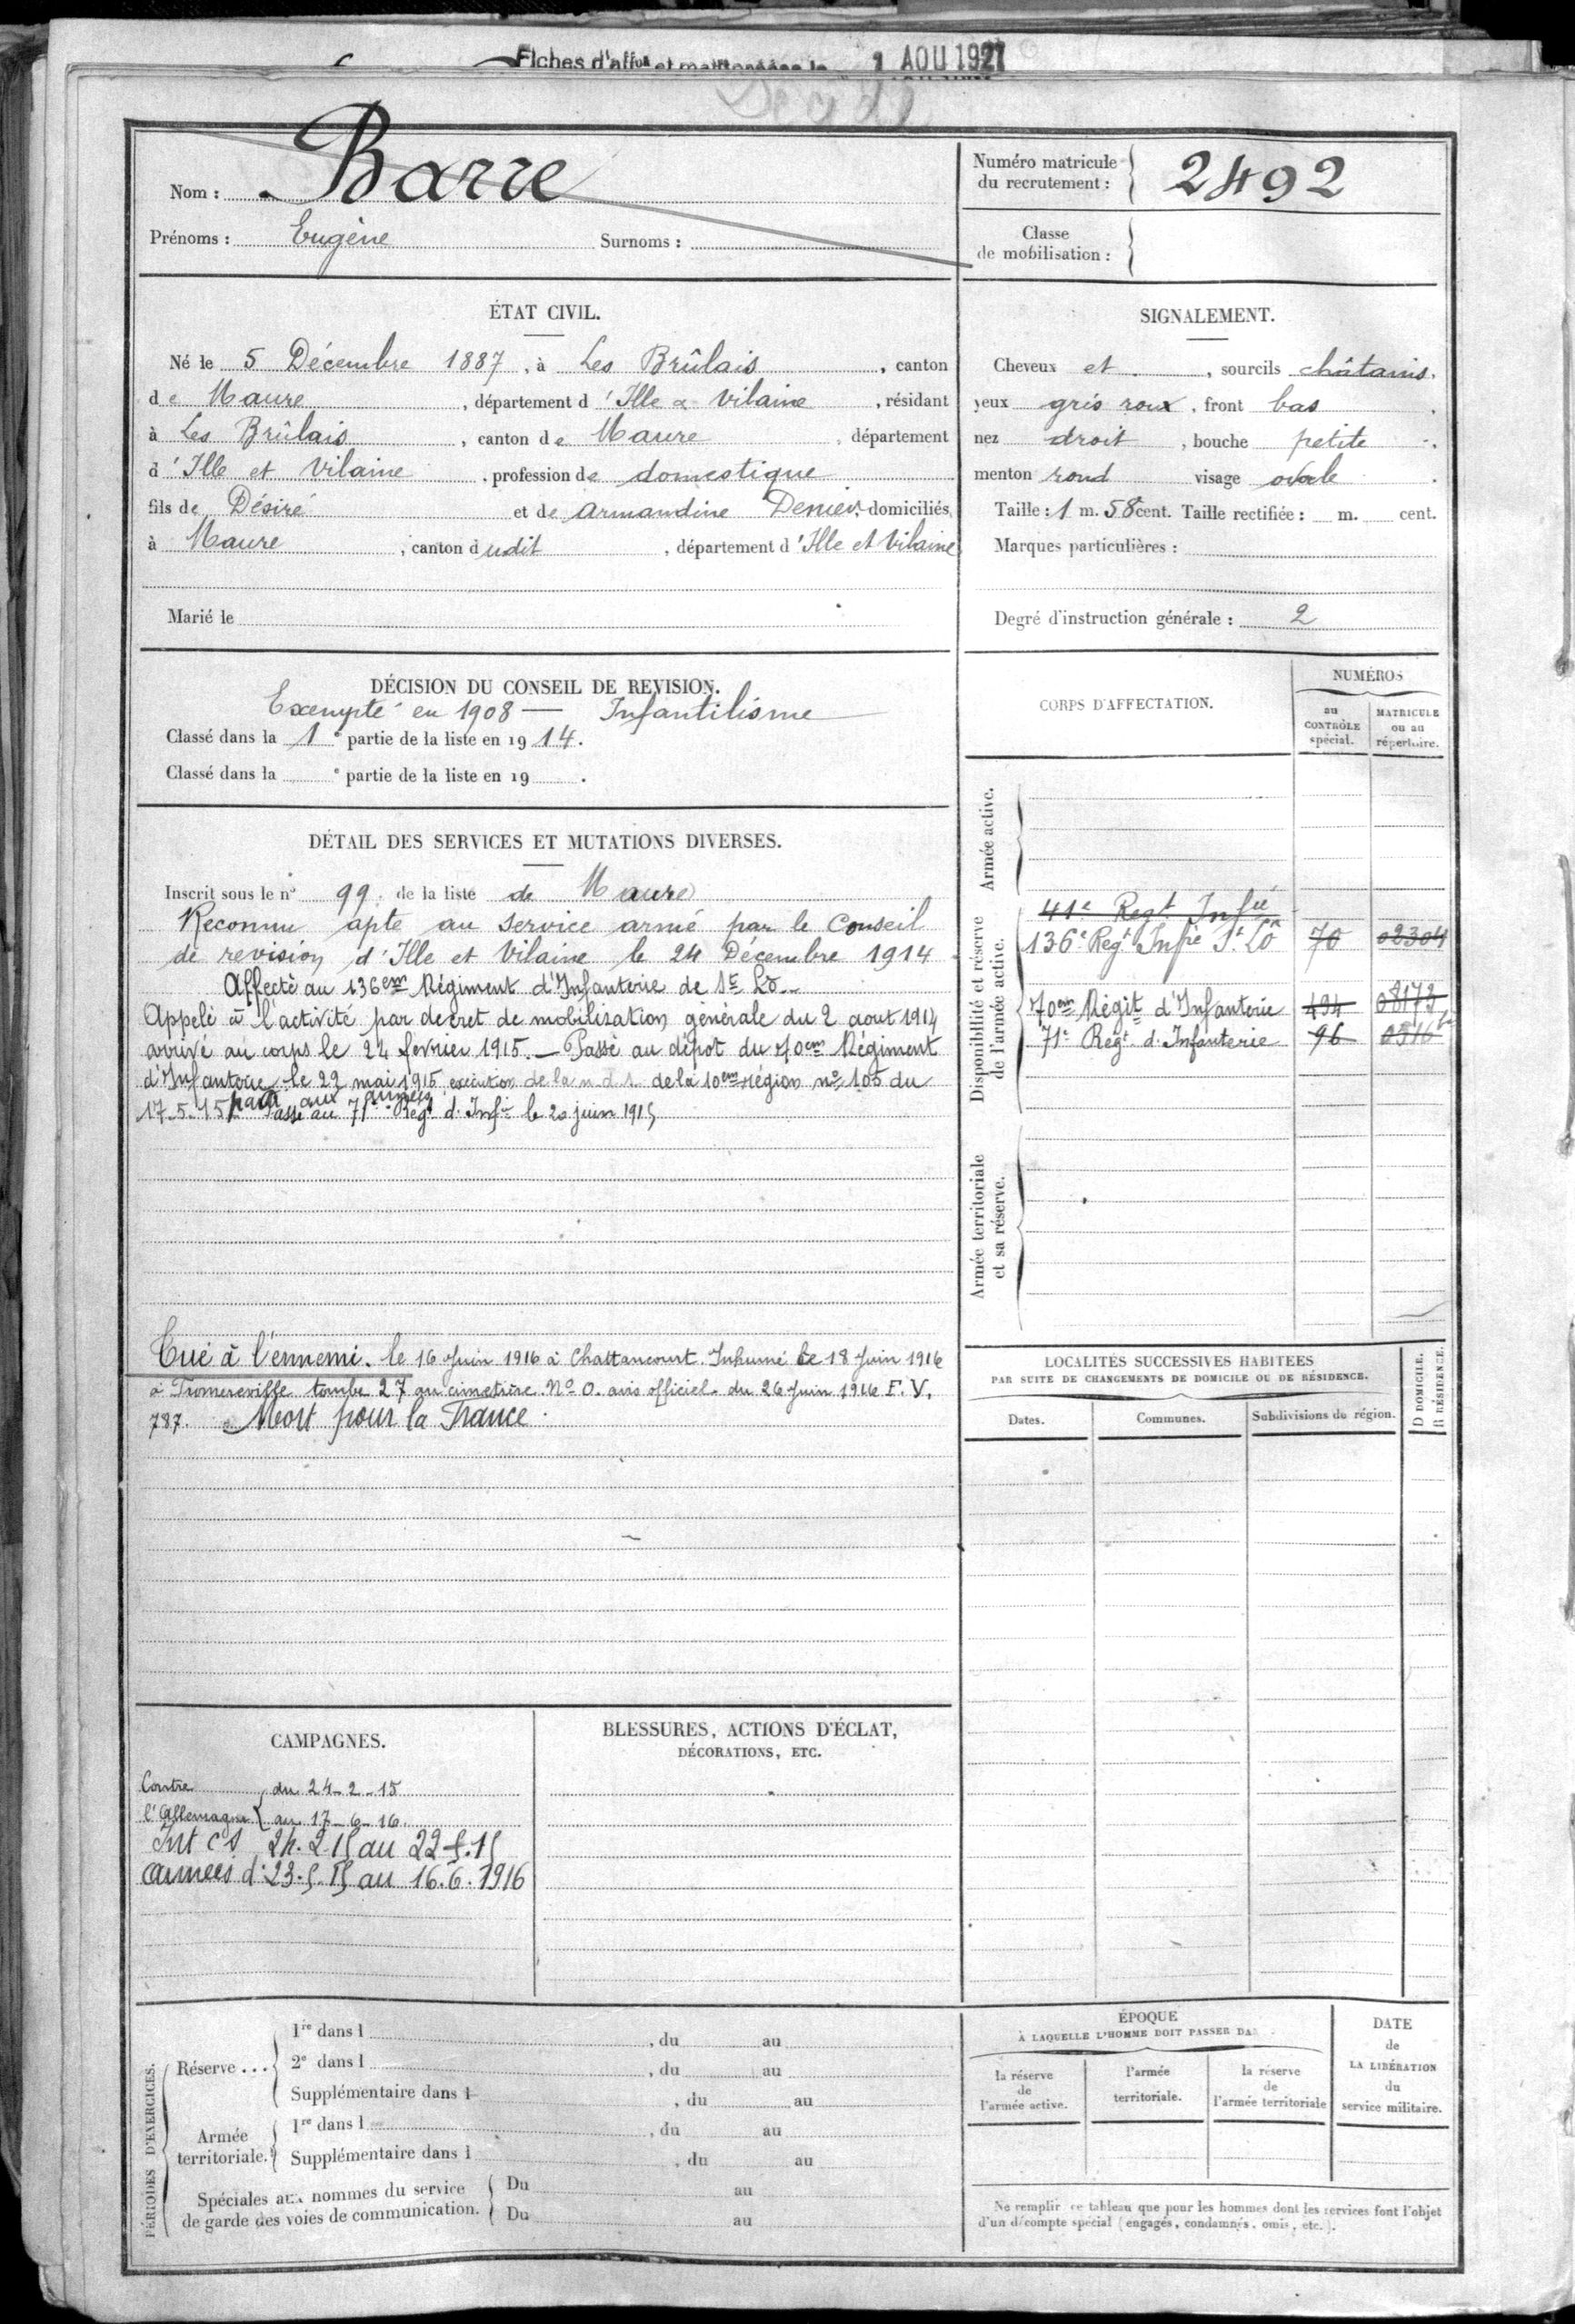 Fiches d'aff^on et 1 AOU 1921
Décédé
Nom : Barre
Prénoms : Eugène Surnoms :
Numéro matricule du recrutement : 2492
Classe de mobilisation :
ÉTAT CIVIL.
Né le 5 Décembre 1887, à Les Brûlais, canton
de Maure, département d'Ille & Vilaine, résidant
à Les Brûlais, canton de Maure, département
d'Ille et Vilaine, profession de domestique
fils de Désiré et de Armandine Denier, domiciliés
à Maure, canton dudit, département d'Ille et Vilaine
Marié le
SIGNALEMENT.
Cheveux et, sourcils châtains.
yeux gris roux, front bas
nez droit, bouche petite
menton rond visage ovale
Taille : 1 m. 58 cent. Taille rectifiée : m. cent.
Marques particulières :
Degré d'instruction générale : 2
DÉCISION DU CONSEIL DE REVISION.
Exempté en 1908 — Infantilisme
Classé dans la 1e partie de la liste en 1914.
Classé dans la e partie de la liste en 19 .
DÉTAIL DES SERVICES ET MUTATIONS DIVERSES.
Inscrit sous le n° 99 de la liste de Maure
Reconnu apte au service armé par le Conseil
de revision d'Ille et Vilaine le 24 Décembre 1914
Affecté au 136em Régiment d'Infanterie de St Lô.
Appelé à l'activité par decret de mobilisation générale du 2 aout 1914
arrivé au corps le 24 fevrier 1915. — Passé au dépot du 70em Régiment
d'Infanterie le 22 mai 1915 execution de la n.d.s. de la 10em région n° 105 du
17-5-15 parti aux armées
Passé au 71e Regt d'Infie le 20 juin 1915
Tué à l'ennemi. le 16 Juin 1916 à Chattancourt. Inhumé le 18 Juin 1916
à Fromereville tombe 27 au cimetière N° 0. avis officiel du 26 Juin 1916 F.V.
787. Mort pour la France.
CORPS D'AFFECTATION.
NUMÉROS
au CONTRÔLE spécial.
MATRICULE ou au répertoire.
Armée active.
Disponibilité et réserve de l'armée active.
41e Regt Infie
136e Regt Infie St Lô 70 02304
70em Régit d'Infanterie 494 08173
71e Regt d'Infanterie 96
Armée territoriale et sa réserve.
LOCALITÉS SUCCESSIVES HABITÉES
PAR SUITE DE CHANGEMENTS DE DOMICILE OU DE RÉSIDENCE.
Dates. Communes. Subdivisions de région. D DOMICILE. R RÉSIDENCE.
CAMPAGNES.
Contre l'Allemagne { du 24-2-15
au 17-6-16
Int CS 24.2.15 au 22.5.15
Armées d: 23.5.15 au 16.6.1916
BLESSURES, ACTIONS D'ÉCLAT,
DÉCORATIONS, ETC.
PÉRIODES D'EXERCICES.
Réserve...
1re dans l , du au
2e dans l , du au
Supplémentaire dans l , du au
Armée territoriale.
1re dans l , du au
Supplémentaire dans l , du au
Spéciales aux hommes du service
de garde des voies de communication.
Du au
Du au
ÉPOQUE
À LAQUELLE L'HOMME DOIT PASSER DA
la réserve de l'armée active.
l'armée territoriale.
la réserve de l'armée territoriale
DATE de LA LIBÉRATION du service militaire.
Ne remplir ce tableau que pour les hommes dont les services font l'objet
d'un décompte spécial (engagés, condamnés, omis, etc.).